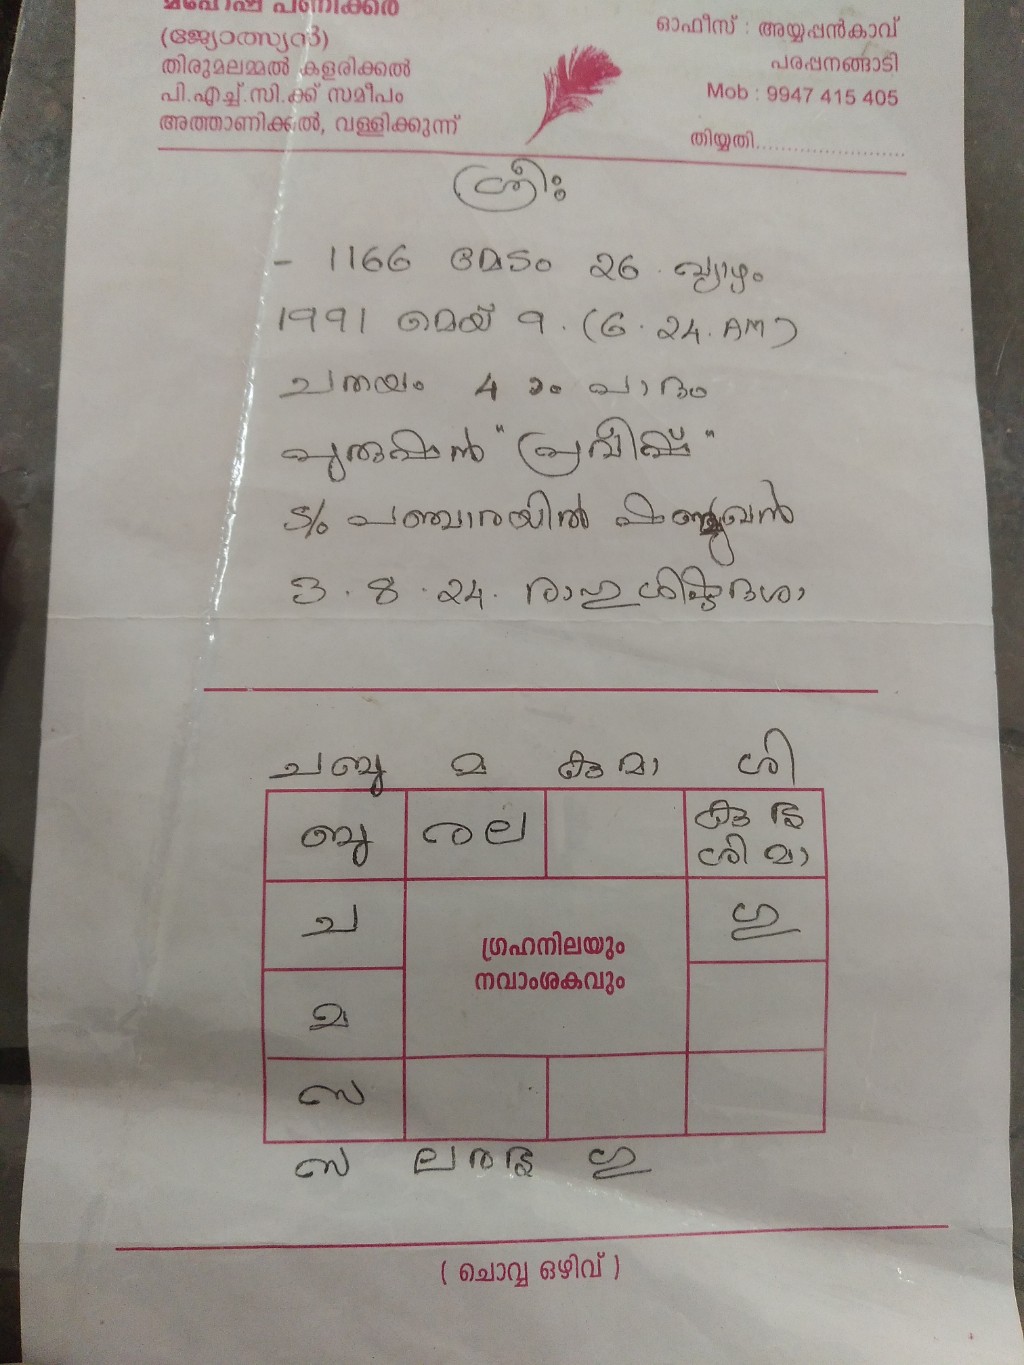 മഹേഷ് പണിക്കർ
(ജ്യോത്സ്യൻ)
തിരുമലമ്മൽ കളരിക്കൽ
പി.എച്ച്.സി.ക്ക് സമീപം
അത്താണിക്കൽ, വള്ളിക്കുന്ന്
ഓഫീസ് : അയ്യപ്പൻകാവ്
പരപ്പനങ്ങാടി
Mob : 9947 415 405
തിയ്യതി........................
ശ്രീഃ
- 1166 മേടം 26 വ്യാഴം
1991 മെയ് 9. (6.24.AM)
ചതയം 4 ാം പാദം
പുരുഷൻ "പ്രവീഷ്"
S/o പഞ്ചാരയിൽ ഷണ്മുഖൻ
3.8.24. രാഹു ശിഷ്ടദശാ
ച ബു മ കു മാ ശി
ബു ര ല കു ഭൃ
ശി മാ
ച ഗു
ഗ്രഹനിലയും
നവാംശകവും
മ
സ
സ ല ര ഭൃ ഗു
( ചൊവ്വ ഒഴിവ് )